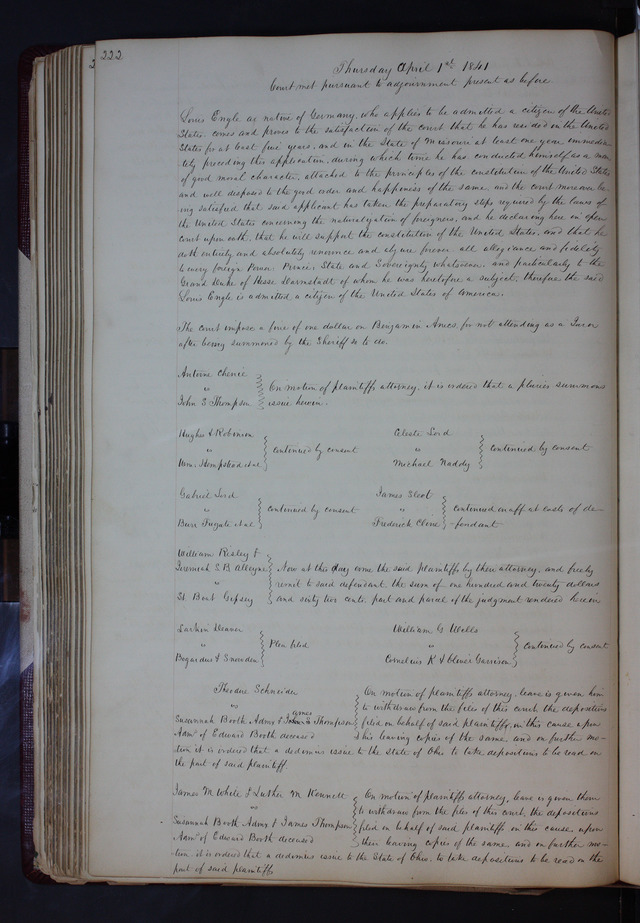 222
Thursday April 1st 1841
Court met pursuant to adjournment present as before
Louis Engle a native of Germany, who applies to be admitted a citizen of the United
States comes and proves to the satisfaction of the court that he has resided in the United
States for at least five years, and in the State of Missouri at least one year immedia-
tely preceding this application, during which time he has conducted himself as a man
of good moral character, attached to the principles of the constitution of the United States
and well disposed to the good order and happiness of the same and the court moreover be-
ing satisfied that said applicant has taken the preparatory steps required by the laws of
the United States concerning the naturalization of foreigners, and he declaring here in open
court upon oath, that he will support the constitution of the United States, and that he
doth entirely and absolutely renounce and abjure forever all allegiance and fidelity
to every foreign Power Prince State and Sovereignty whatsoever, and particularly to the
Grand Duke of Hesse Darmstadt of whom he was heretofore a subject, therefore the said
Louis Engle is admitted a citizen of the United States of America.
The court impose a fine of one dollar on Benjamin Ames, for not attending as a Juror
after being summoned by the Sheriff so to do.
Antoine Chenie
"
John S Thompson
On motion of plaintiffs attorney, it is ordered that a pluries summons
issue herein.
Hughes & Robinson
"
Wm. Hempstead et al
continued by consent
Celeste Lord
"
Michael Naddy
continued by consent
Gabriel Lord
"
Burr Fugate et al
continued by consent
James Sloot
"
Frederick Cline
continued on aff. at costs of de-
-fendant
William Risley &
Jeremiah S. B. Alleyne
"
St. Boat Gipsey
Now at this day come the said plaintiffs by their attorney, and freely
remit to said defendant the sum of one hundred and twenty dollars
and sixty two cents, part and parcel of the judgment rendered herein
Larkin Deaver
"
Bogardus & Snowden
Plea filed
William G Wells
"
Cornelius K & Oliver Garrison
continued by consent
Theodore Schneider
"
Susannah Booth Admx & James Thompson
Admr of Edward Booth deceased
On motion of plaintiffs attorney, leave is given him
to withdraw from the files of this court, the depositions
filed on behalf of said plaintiffs, in this cause upon
his leaving copies of the same and on further mo-
tion it is ordered that a dedimus issue to the State of Ohio to take depositions to be read on
the part of said plaintiff.
James M. White & Luther M. Kennett
"
Susannah Booth Admx & James Thompson
Admr of Edward Booth deceased
On motion of plaintiffs attorney, leave is given them
to withdraw from the files of this court, the depositions
filed in behalf of said plaintiffs in this cause, upon
their leaving copies of the same and on further mo-
tion, it is ordered that a dedimus issue to the State of Ohio, to take depositions to be read on the
part of said plaintiffs